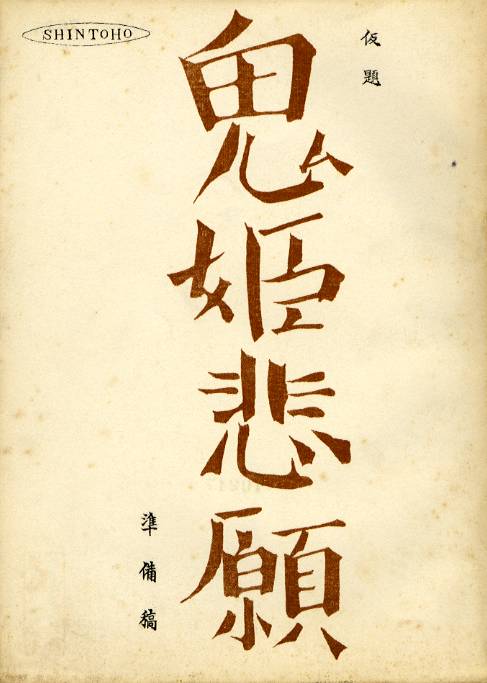 SHINTOHO
仮題
鬼姫悲願
準備稿